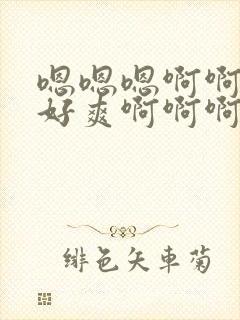 嗯嗯嗯啊啊
好爽啊啊啊
绯色矢車菊